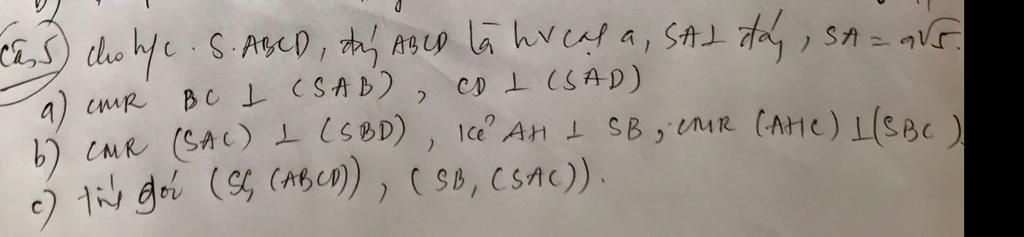 Câu 5) cho h/c. S.ABCD, đáy ABCD là hv cạnh a, SA ⊥ đáy, SA = a√5.
a) CMR BC ⊥ (SAB), CD ⊥ (SAD)
b) CMR (SAC) ⊥ (SBD), kẻ AH ⊥ SB, CMR (AHC) ⊥ (SBC)
c) tính góc (SC, (ABCD)), (SB, (SAC)).